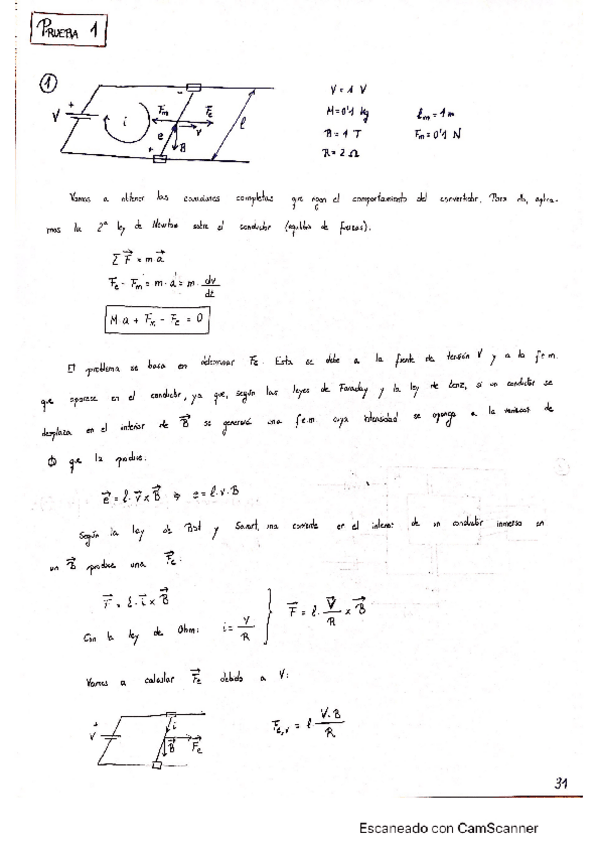 PRUEBA 1
1
V = 1 V
M = 0'1 kg
l_m = 1 m
B = 1 T
F_m = 0'1 N
R = 2 Ω
V + i F_m F_e e v B l + -
Vamos a obtener las ecuaciones completas que rigen el comportamiento del convertidor. Para ello, aplica-
mos la 2ª ley de Newton sobre el conductor (equilibrio de fuerzas).
Σ F⃗ = m a⃗
F_e - F_m = m · a = m · dv/dt
M·a + F_m - F_e = 0
El problema se basa en determinar F_e. Esta se debe a la fuente de tensión V y a la f.e.m.
que aparece en el conductor, ya que, según las leyes de Faraday y la ley de Lenz, si un conductor se
desplaza en el interior de B⃗ se generará una f.e.m. cuya intensidad se oponga a la variación de
Φ que la produce.
e⃗ = l · v⃗ × B⃗ ⇒ e = l · v · B
Según la ley de Biot y Savart, una corriente en el interior de un conductor inmerso en
un B⃗ produce una F⃗_e.
F⃗ = l · i⃗ × B⃗
Con la ley de Ohm: i = V/R
F⃗ = l · V⃗/R × B⃗
Vamos a calcular F⃗_e debido a V:
V + i B⃗ F_e
F_e,v = l V·B/R
31
Escaneado con CamScanner